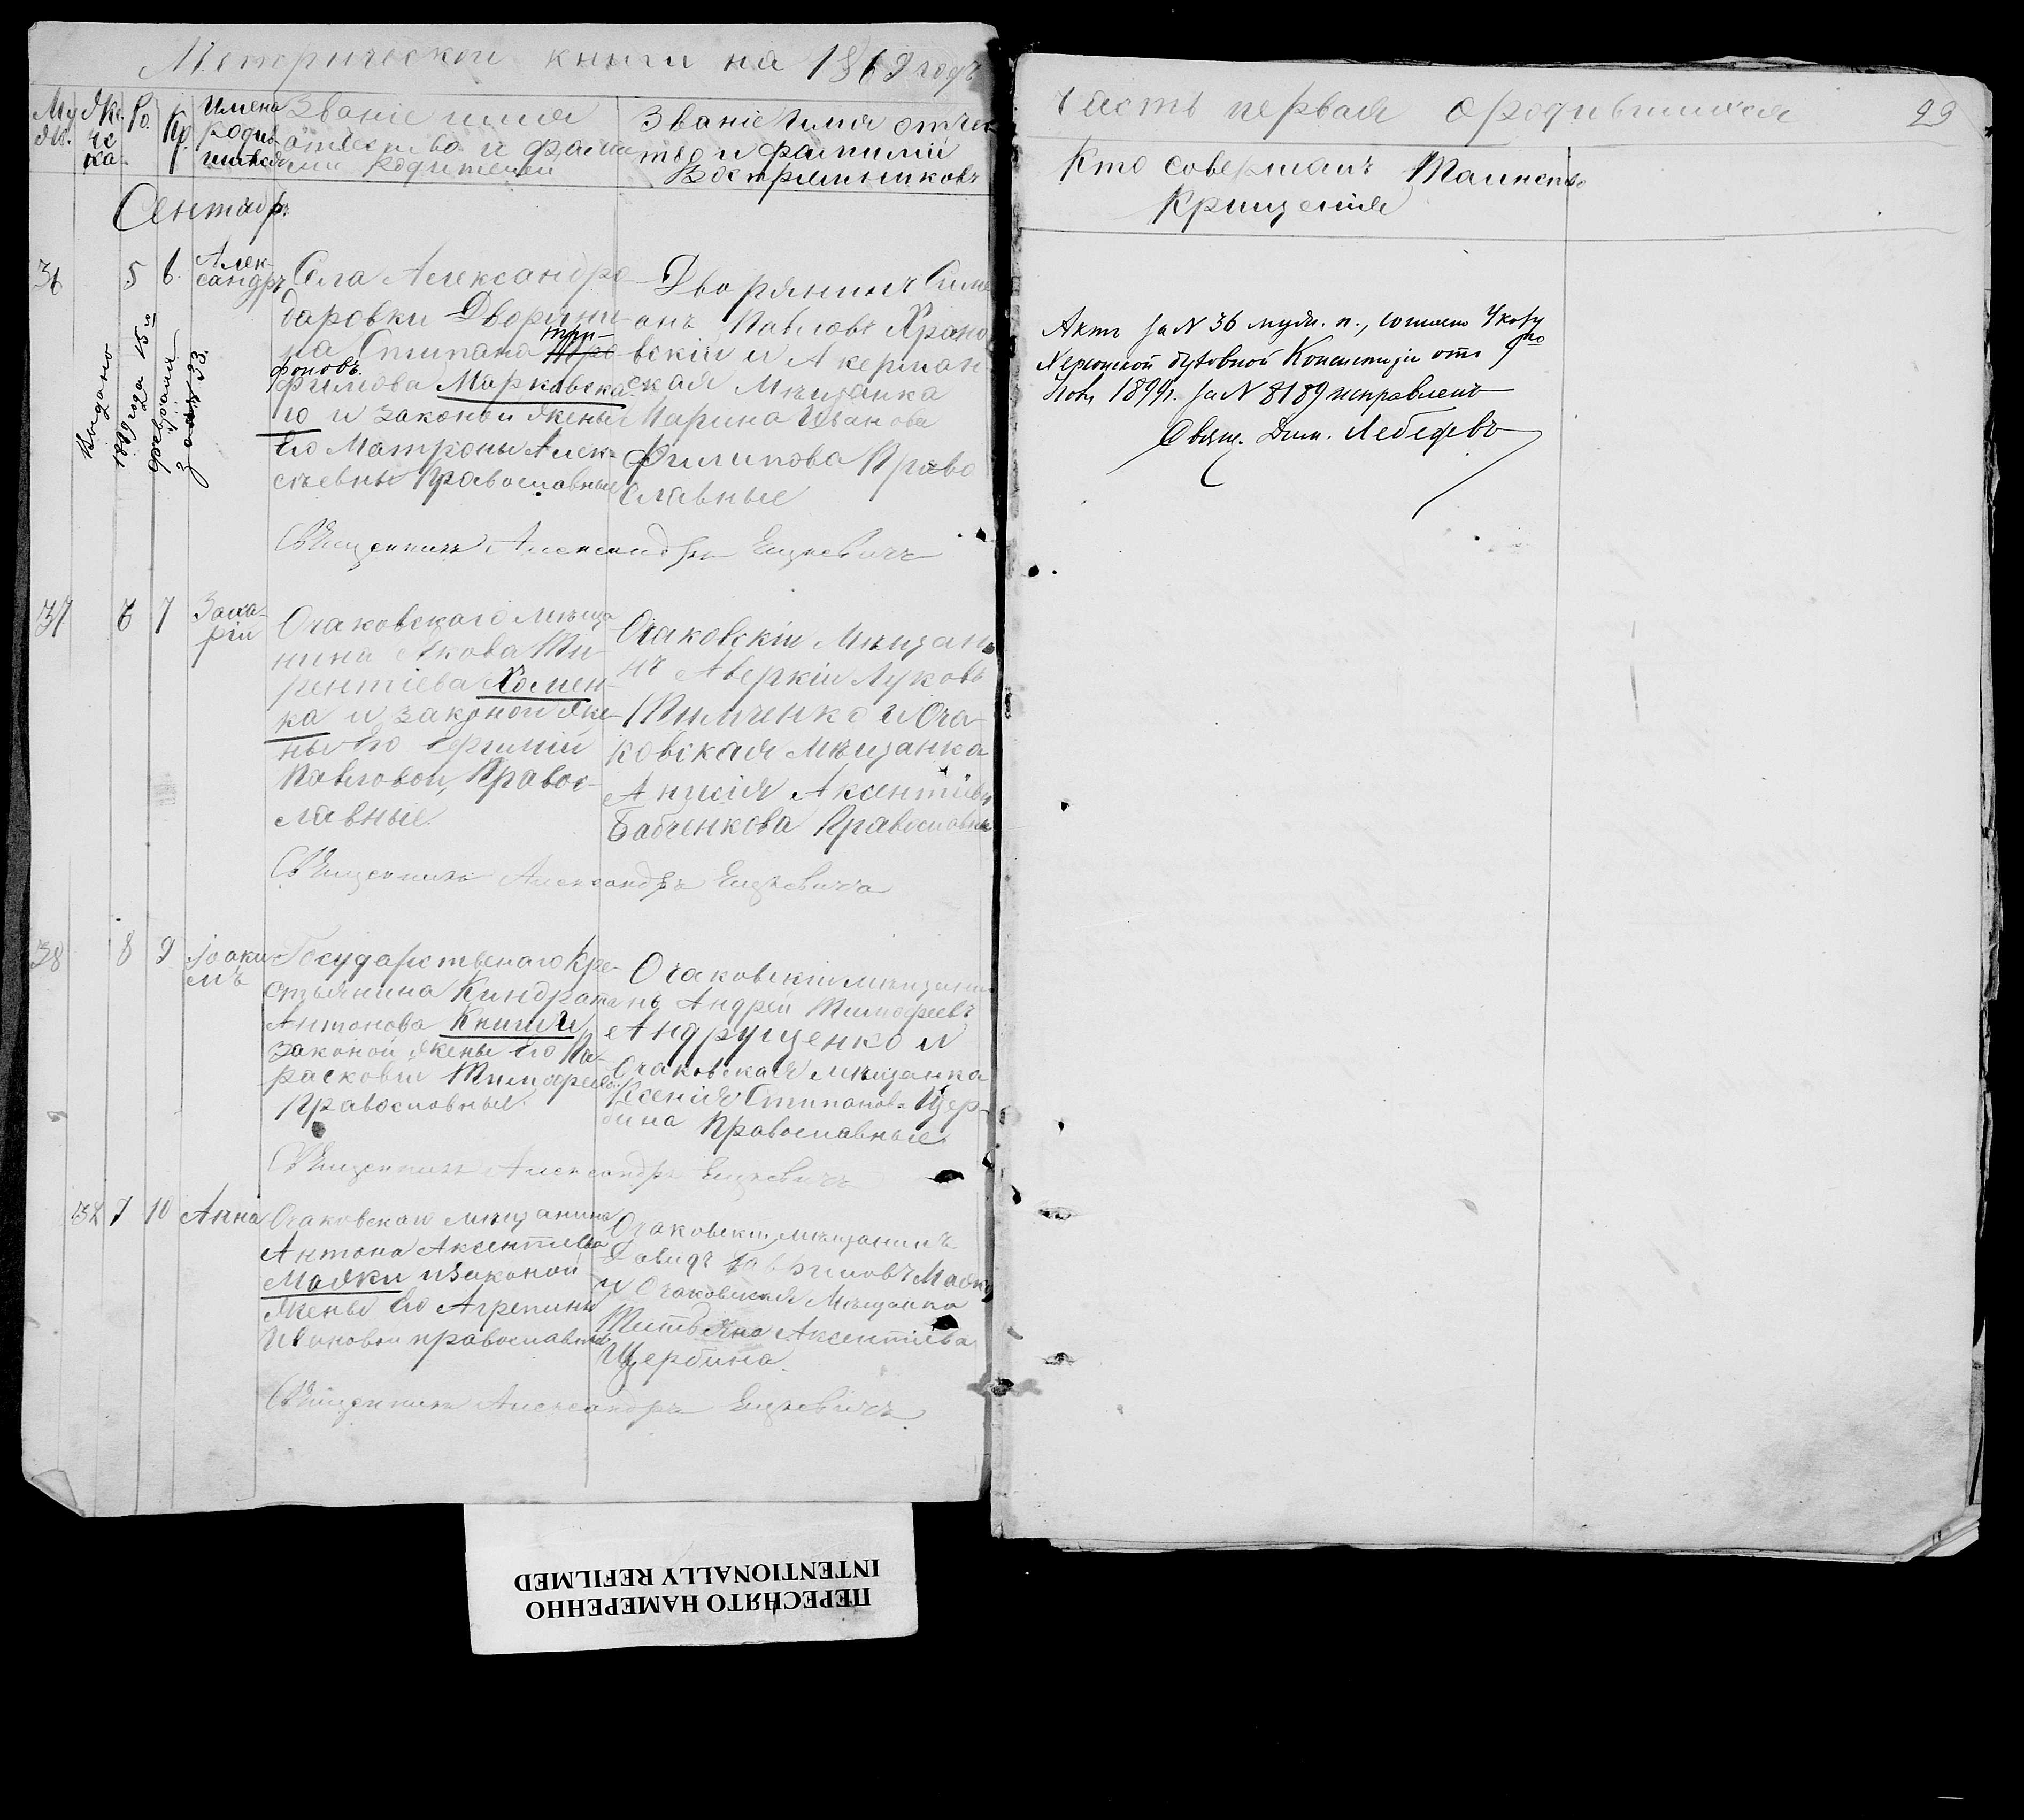 Метрической книги на 1869 годъ
Му
Же
Ро.
Кр.
Имена
Званіе имя
Званіе Имя отчес
жс.
нс
ка
Родив
шихся
отчество и фами
ліи Родителей
тво и фамилій
Воспріемниковъ
Сентябрь
36
5
6.
Алек-
сандръ
Села Александро
даровки Дворяни-
на Стипана
три-
фоновъ
фимова Марковска
го и законой жены
его Матроны Алек-
сѣевны Православные
Дворянинъ Сим
онъ Павловъ Храно
вскій и Акерман-
ская Мѣщанка
Марина Иванова
Филипова Право
славные
Выдано
1899 года 15
февраля
за № 33.
Священникъ Александръ Ецкевичъ
37
6
7
Заха-
рій
Очаковскаго мѣща
нина Якова Ти-
рентіева Хомен-
ка и законой же-
ны его Ефимій
Павловой, Правос-
лавные.
Очаковскій Мѣщани
нъ Аверкій Луковъ
Тимченко и Оча-
ковская Мѣщанка
Анисія Аксентіева
Бабченкова Православные
Священникъ Александръ Ецкевичъ
38
8
9
Іоаки
мъ
Государственаго Кре-
стьянина Киндрата
Антонова Книги и
законой жены его Па-
расковіи Тимофеевой
Православные.
Очаковскій мѣщани
нъ Андрей Тимофеевъ
Андрущенко и
Очаковская мѣщанка
Ксенія Стипанова Щер-
бина Православные
Священникъ Александръ Ецкевичъ
32
7
10
Анна
Очаковскаго мѣщанина
Антона Аксентіева
Маяки и законой
жены его Агрепины
Ивановой православные
Очаковскій мѣщанинъ
Давидъ Гавриловъ Маяка
и Очаковская Мѣщанка
Аксентіева
Щербина.
Священникъ Александръ Ецкевичъ
часть первая о родившихся
29
Кто совершалъ Таинство
Крищенія
Актъ за N 36 муж. п., согласно Указу
Херсонской духовной Консисторіи отъ 9го
Ноя. 1899г. за N 8189 исправленъ
Свящ. Дим. Лебедевъ
ПЕРЕСНЯТО НАМЕРЕННО
INTENTIONALLY REFILMED